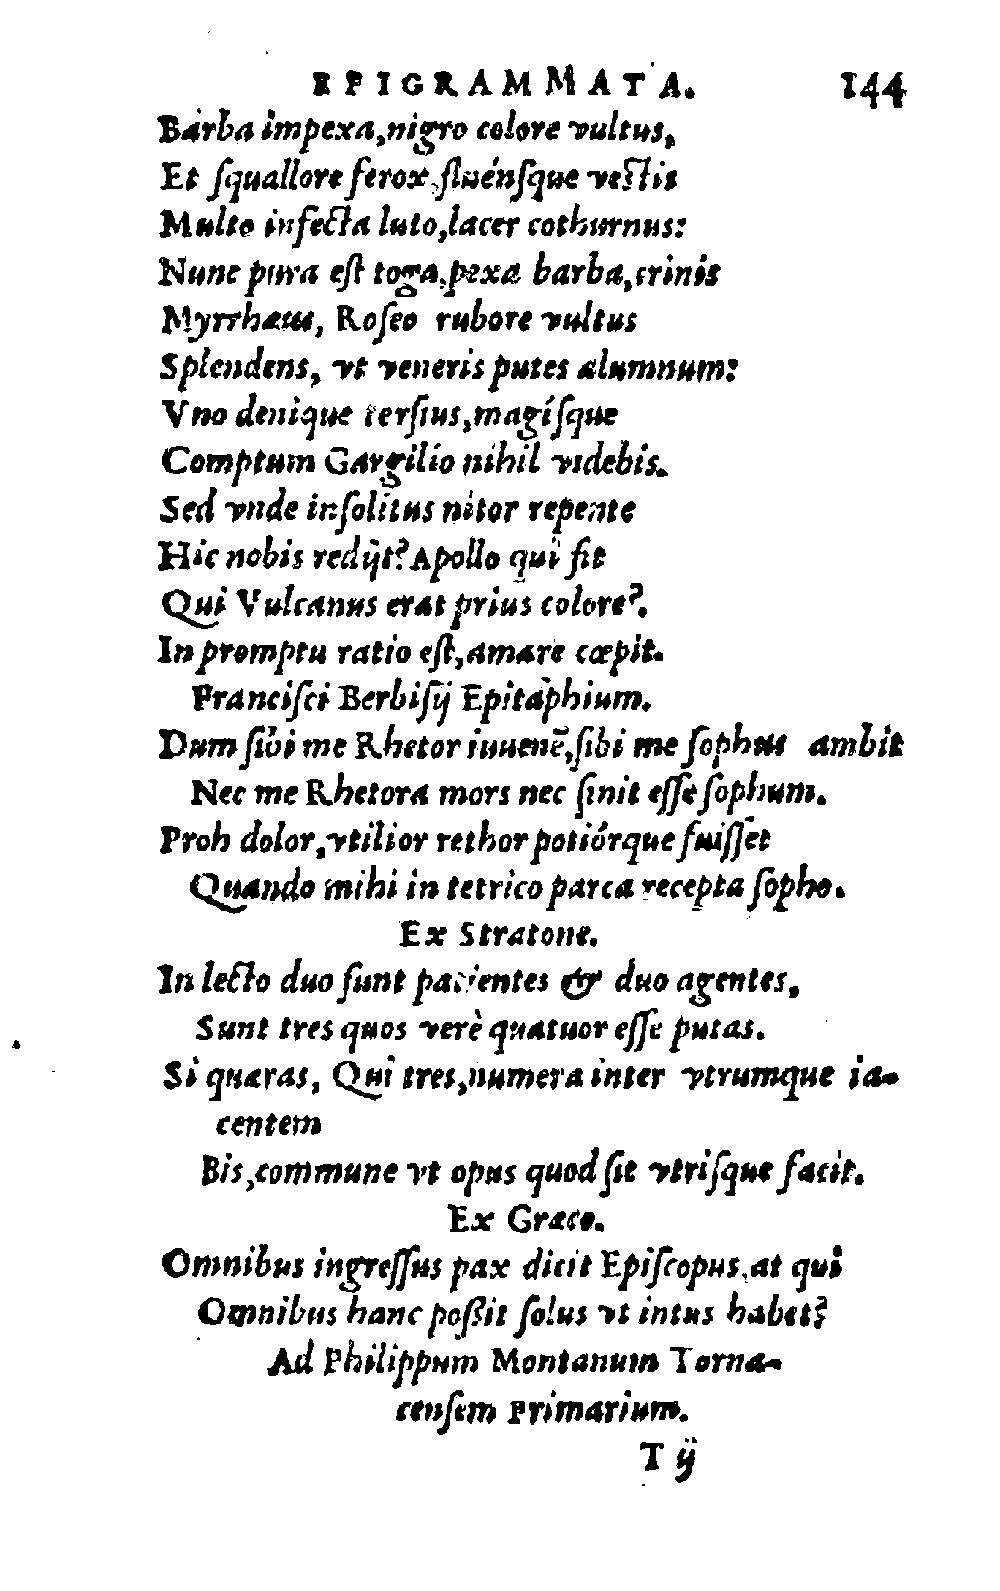 EPIGRAMMATA. 144
Barba impexa,nigro colore vultus,
Et ſquallore ferox,fluénſque veſtis
Multo infecta luto,lacer cothurnus:
Nunc pura eſt toga,pexa barba,crinis
Myrrhæus, Roſeo rubore vultus
Splendens, vt veneris putes alumnum:
Vno denique terſius,magíſque
Comptum Gargilio nihil videbis.
Sed vnde inſolitus nitor repente
Hic nobis redijt? Apollo qui fit
Qui Vulcanus erat prius colore?.
In promptu ratio eſt,amare cœpit.
Franciſci Berbiſij Epitaphium.
Dum ſibi me Rhetor iuuenē,ſibi me ſophus ambit
Nec me Rhetora mors nec ſinit eſſe ſophum.
Proh dolor,vtilior rethor potiórque fuiſſet
Quando mihi in tetrico parca recepta ſopho.
Ex Stratone.
In lecto duo ſunt patientes & duo agentes,
Sunt tres quos verè quatuor eſſe putas.
Si quæras, Qui tres,numera inter vtrumque ia-
centem
Bis,commune vt opus quod ſit vtriſque facit.
Ex Græco.
Omnibus ingreſſus pax dicit Epiſcopus,at qui
Omnibus hanc poßit ſolus vt intus habet?
Ad Philippum Montanum Torna-
cenſem Primarium.
T ij